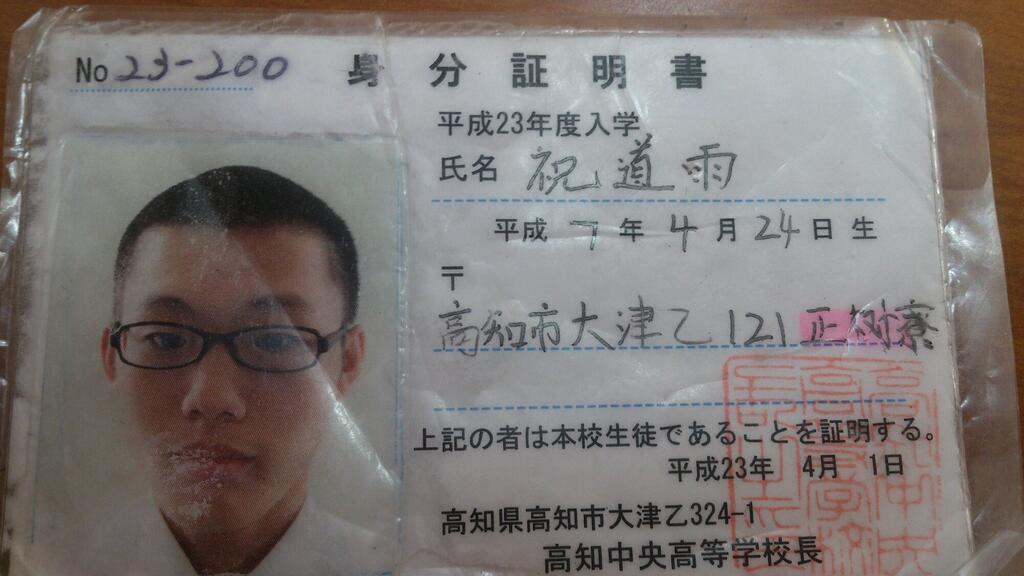 No 23-200 身分証明書
平成23年度入学
氏名 祝道雨
平成 7年 4月 24日 生
〒
高知市大津乙121正樹寮
上記の者は本校生徒であることを証明する。
平成23年 4月 1日
高知県高知市大津乙324-1
高知中央高等学校長